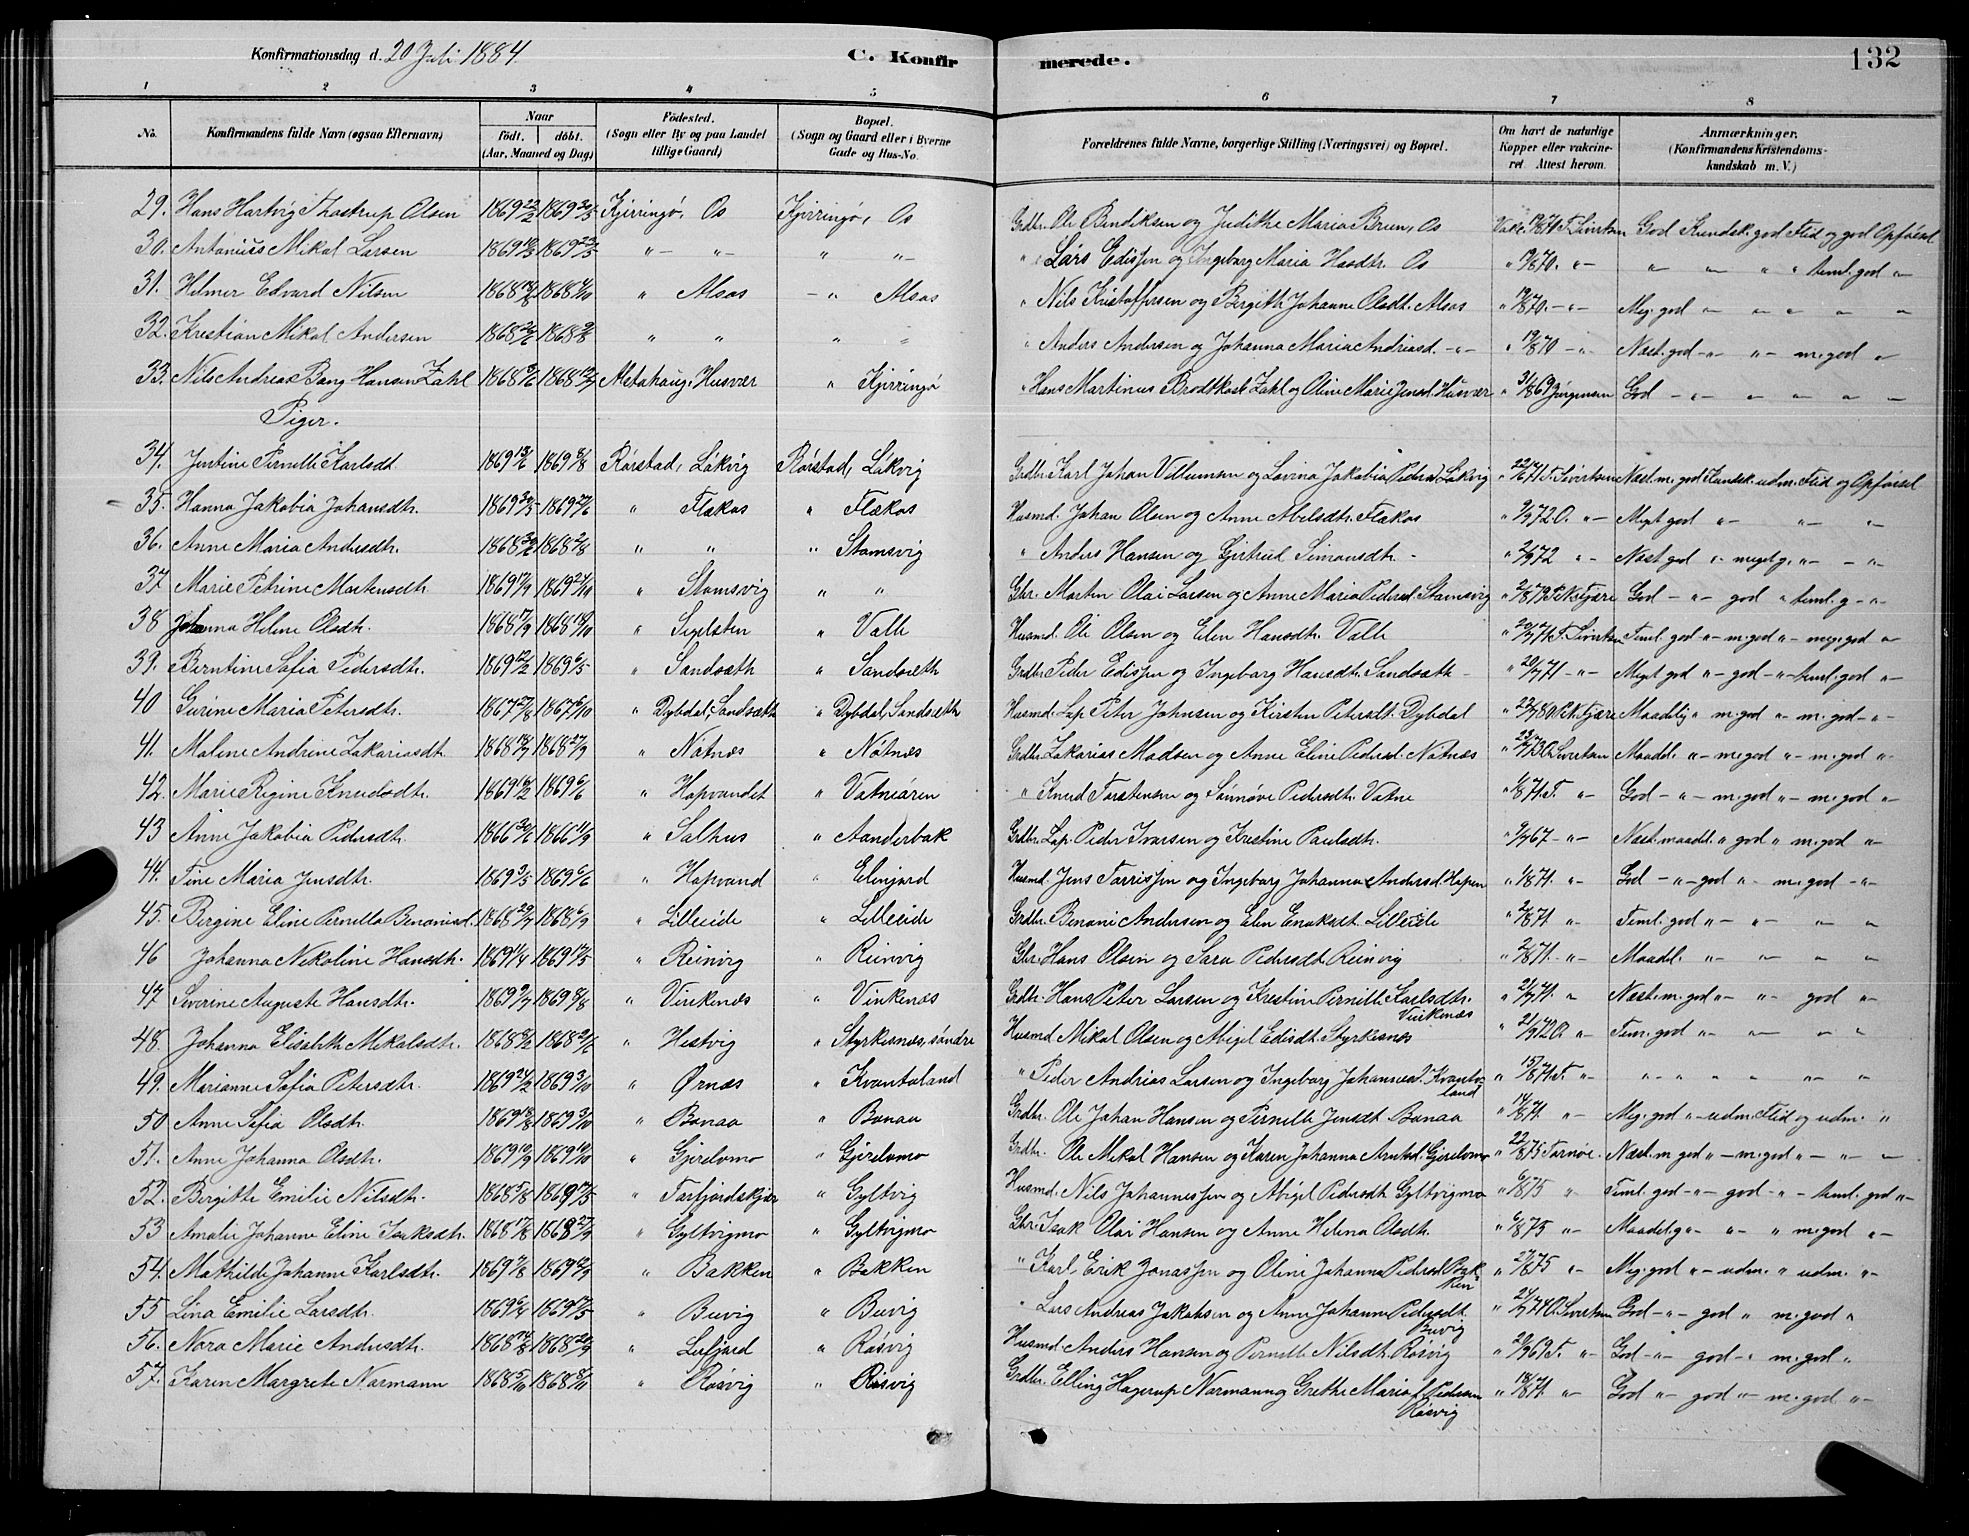 Konfirmationsdag d. 20 Juli 1884. C. Konfirmerede. 132
1 2 3 4 5 6 7 8
No. Konfirmandens fulde Navn (ogsaa Efternavn) Naar födt. döbt. (Aar, Maaned og Dag) Födested. (Sogn eller By og paa Landet tillige Gaard) Bopæl. (Sogn og Gaard eller i Byerne Gade og Hus-No. Forældrenes fulde Navne, borgerlige Stilling (Næringsvei) og Bopæl. Om havt de naturlige Kopper eller vakcineret Attest herom. Anmærkninger. (Konfirmandens Kristendomskundskab m. V.)
29. Hans Hartvig Thostrup Olsen 1869 23/2 1869 30/5 Kjerringö, Os Kjerringö, Os Grdbr. Ole Bendiksen og Judithe Maria Bruun, Os God Kundsk. god Flid og god Opförsel
30. Antonius Mikal Larsen 1869 1869 23/5 " " " " " Lars Edissen og Ingeborg Maria Hansdtr. Os " " " " teml. god "
31. Hilmer Edvard Nilsen 1868 1868 " Alsos " Alsos " Nils Kristoffersen og Bergith Johanne Olsdt. Alsos " 19/8 70. " Meg. god " " " " "
32. Kristian Mikal Andersen 1868 1868 " " " " " Anders Andersen og Johanna Maria Andreasd. " " 19/8 70 " Næst. god " " m. god "
33. Nils Andreas Bang Hansen Zahl 1868 1868 Alstahaug, Husvær " Kjerringö " Hans Martinus Brodtkorb Zahl og Oline Marie Jensd. Husvær " 3/8 69 Jörgensen God " " " " "
Piger.
34. Jentine Pernille Karlsdt. 1869 1869 Rörstad, Lákvig Rörstad, Lákvig Grdbr. Karl Johan Villumsen og Lovina Jakobia Pedersd. Lákvig " T. Sivertsen Næst. m. god Kundsk. udm. Flid og Opförsel
35. Hanna Jakobia Johansdtr. 1869 1869 " Flakos " Flakos Husmd. Johan Olsen og Anne Abelsdtr. Flakos " O. " Meget god " " "
36. Anne Maria Andersdtr. 1868 1868 2/8 " " " Stomsvig " Anders Hansen og Gjertrud Simonsdtr. " Næst. god " meget g. " "
37. Marie Petrine Martensdtr. 1869 1869 " Stomsvig " " Gbr. Morten Olai Larsen og Anne Maria Pedersd. Stomsvig " God " god " teml. g "
38 Johanna Helene Olsdtr. 1868 17/9 1868 18/10 " Segelsten " Valle Husmd. Ole Olsen og Elen Hansdtr. Valle " T. Sivertsen Teml. god " m. god " meg. god "
39. Berntine Sofia Pedersdtr. 1869 12/2 1869 6/5 " Sandsæth " Sandsæth Grdbr. Peder Edissen og Ingeborg Hansdtr. Sandsæth " 20/7 71 " Meget god " god " teml. god "
40 Gurine Maria Petersdtr. 1867 27/8 1867 6/10 " Dybdal, Sandsæth " Dybdal, Sandsæth Husmd. Lap. Peter Johnsen og Kirsten Petersdt. Dybdal " Maadelig " m. god " m. god "
41. Malene Andrine Zakariasdt. 1868 18/7 1868 27/9 " Nötnæs " Nötnæs Grdbr. Zakarias Madsen og Anne Eline Pedersd. Nötnæs " O. Sivertsen Maadel. " m. god " m. god "
42. Marie Regine Knudsdtr. 1869 1869 6/6 " Hopvandet " Vatnejören " Knud Torstensen og Sönnöve Pedersdtr. Vatne " 1/8 71. T. " God " m. god " m. god "
43 Anne Jakobia Pedersdtr. 1866 1866 11/9 " Salhus " Aanderbak Grdbr. Lap. Peder Ivarsen og Kristine Paulsdtr. " 9/7 67 " Næst. maadel. " god " m. god "
44. Tine Maria Jensdtr. 1869 3/5 1869 6/6 " Hopvand " Elvefjord Husmd. Jens Torrissen og Ingeborg Johanna Andersd. Hopen " 1/8 71. " God " god " m. god "
45. Bergine Eline Pernille Benoniasd. 1868 29/7 1868 6/9 " Lilleeide " Lilleeide Grdbr. Benoni Andersen og Elen Enoksdt. Lilleeide " 2/8 71 " Teml. god " " " "
46 Johanna Nekoline Hansdtr. 1869 1/4 1869 17/5 " Reinvig " Reinvig Gbr. Hans Olsen og Sara Pedersdt. Reinvig " 2/8 71. " Maadl. " " " "
47 Severine Auguste Hansdtr. 1869 9/7 1869 8/8 " Vinkenæs " Vinkenæs Grdbr. Hans Peter Larsen og Kristine Pernille Karlsdtr. Vinkenæs " 21/7 71. " Næst. m. god " " god "
48. Johanna Elisebeth Mikalsdtr. 1868 1868 " Hestvig " Styrkesnæs, söndre Husmd. Mikal Olsen og Abigel Edisdt. Styrkesnæs " 21/9 72 O. " Tem. god " " " "
49. Marianne Sofia Petersdtr. 1869 24/2 1869 3/10 " Ørnæs " Kvantoland " Peder Andrias Larsen og Ingeborg Johannesd. Kvantoland " 15/8 71. T. " " " " " " "
50 Anne Sofia Olsdtr. 1869 18/8 1869 3/10 " Bonaa " Bonaa Grdbr. Ole Johan Hansen og Pernille Jensdt. Bonaa " 14/8 71 " Meg. god " udm. Flid og udm. "
51. Anne Johanna Olsdtr. 1869 10/9 1869 10/10 " Gjerdvmo " Gjerdvmo Grdbr. Ole Mikal Hansen og Karen Johanna Arntsd. Gjerdvmo " 22/8 75 Tornöe. Næst. m god " m. god " " "
52. Bergitte Emilie Nilsdtr. 1868 5/8 1869 " Torfjordskjær " Gyltvig Husmd. Nils Johannessen og Abigel Pedersdt. Gyltvigmo " 6/8 75 " Teml. god " god " teml. god "
53 Amalie Johanne Eline Isaksdtr. 1868 17/8 1868 27/9 " Gyltvigmo " Gyltvigmo Gbr. Isak Olai Hansen og Anne Helena Olsdtr. " 6/8 75 " Maadel. g " " " m. god "
54. Mathilde Johanne Karlsdtr. 1869 1869 " Bakken " Bakken " Karl Erik Jonassen og Oline Johanna Pedersd. Bakken " 27/8 75 " Meg. god " udm. " udm. "
55 Lina Emilie Larsdtr. 1869 6/4 1869 17/5 " Buvig " Buvig " Lars Andreas Jakobsen og Anne Johanne Pedersdt. Buvig " O. Sivertsen God " god " m. god "
56. Nora Marie Andersdtr. 1868 14/8 1868 20/9 " Lifjord " Rösvig Husmd. Anders Hansen og Pernille Nilsdt. Rösvig " 20/9 69 T. " God " god " m. god "
57. Karen Margrete Normann 1868 5/10 1868 8/11 " Rösvig " Rösvig Grdbr. Elling Hagerup Normann og Grethe Maria f. Pedersen Rösvig " 18/8 71. " God " god " m. god "